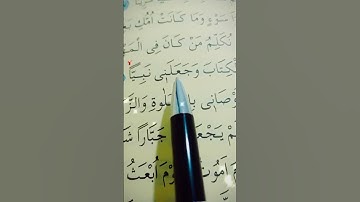 سَوْءٍ وَمَا كَانَتْ اُمُّكِ
نُكَلِّمُ مَنْ كَانَ فِى الْمَهْ
لْكِتَابَ وَجَعَلَنٖى نَبِيًّا
وْصَانٖى بِا لٰوةِ وَالزَّ
مْ يَجْعَ جَبَّارًا شَ
مَ اَمُوتُ وْمَ اُبْعَثُ